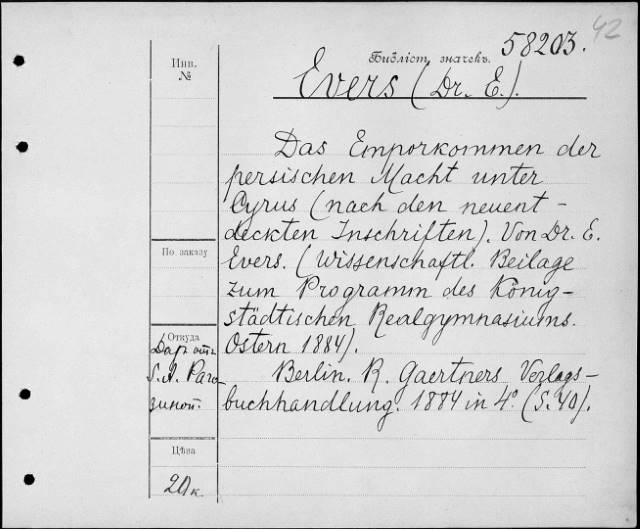 42
58203.
Библіот. значекъ.
Инв.
№
Evers (Dr. E.).
Das Emporkommen der
persischen Macht unter
Cyrus (nach den neuent-
deckten Inschriften). Von Dr. E.
Evers. (Wissenschaftl. Beilage
zum Programm des König-
städtischen Realgymnasiums.
Ostern 1884).
Berlin. R. Gaertners Verlags-
buchhandlung. 1884 in 4° (S. 40).
По заказу
Откуда
Даръ отъ
З. А. Раго-
зиной.
Цѣна
20 к.